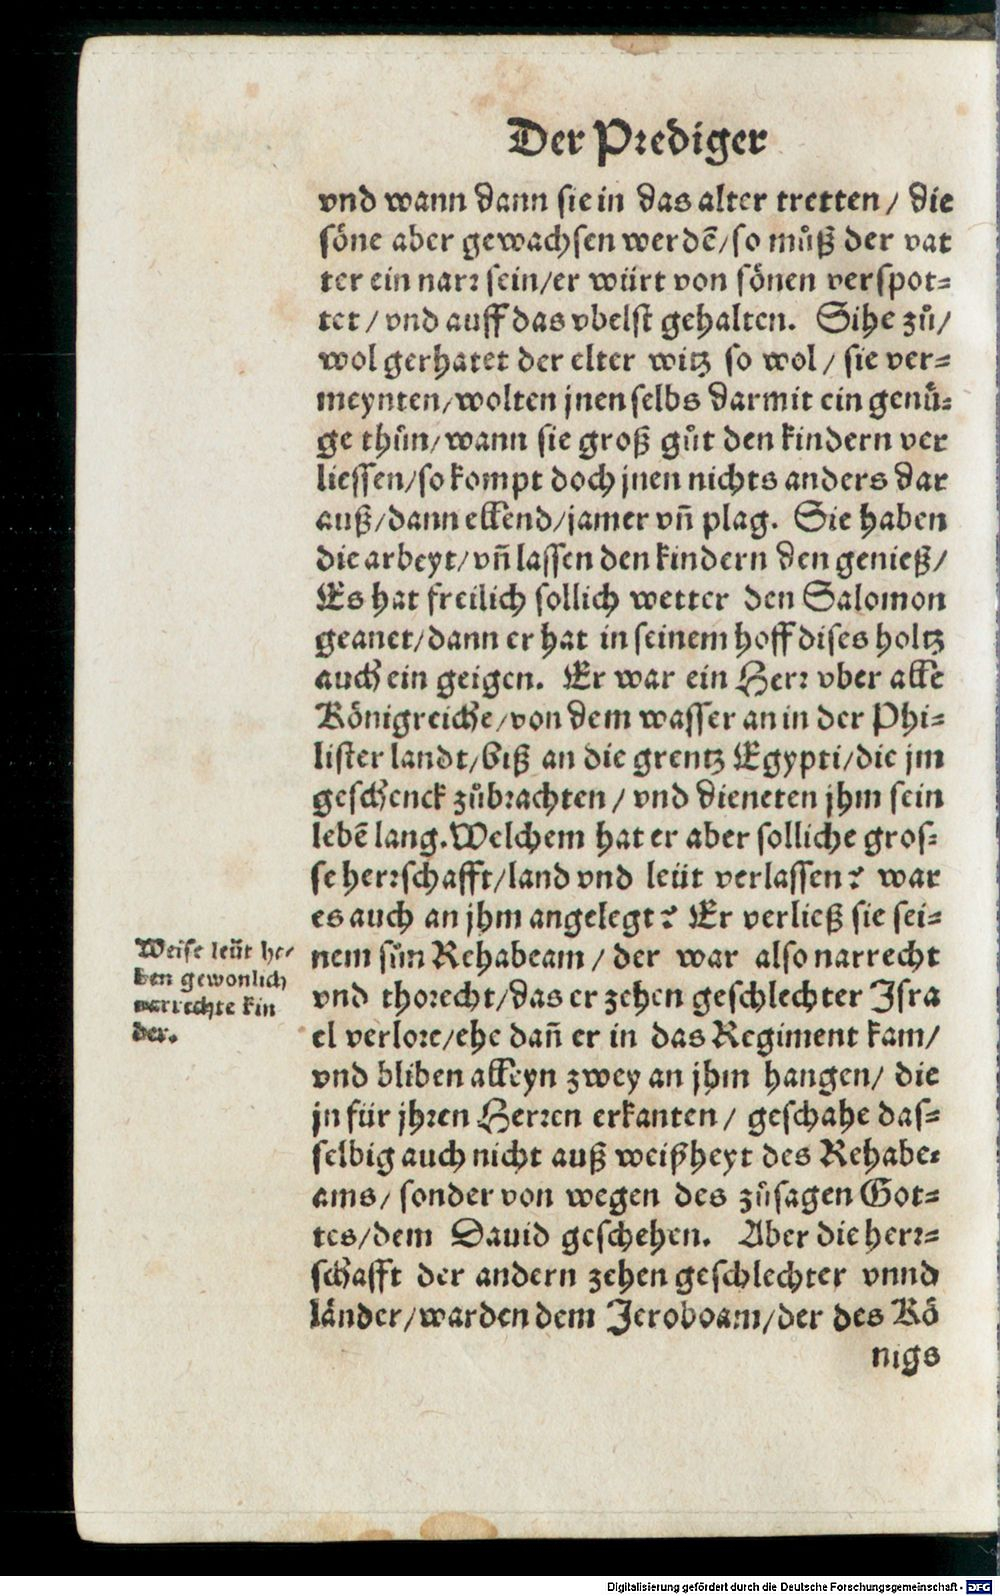 Der Prediger
vnd wann dann sie in das alter tretten / die
söne aber gewachsen werdẽ/so můß der vat
ter ein narr sein/er würt von sönen verspot=
tet / vnd auff das vbelst gehalten. Sihe zů/
wol gerhatet der elter witz so wol / sie ver=
meynten/wolten jnen selbs darmit ein genů=
ge thůn/wann sie groß gůt den kindern ver
liessen/so kompt doch jnen nichts anders dar
auß/dann ellend/jamer vñ plag. Sie haben
die arbeyt/vñ lassen den kindern den genieß/
Es hat freilich sollich wetter den Salomon
geanet/dann er hat in seinem hoff dises holtz
auch ein geigen. Er war ein Herr vber alle
Königreiche/von dem wasser an in der Phi=
lister landt/biß an die grentz Egypti/die jm
geschenck zůbrachten / vnd dieneten jhm sein
lebẽ lang. Welchem hat er aber solliche gros=
se herrschafft/land vnd leüt verlassen? war
es auch an jhm angelegt? Er verließ sie sei=
nem sůn Rehabeam / der war also narrecht
vnd thorecht/das er zehen geschlechter Isra
el verlore/ehe dañ er in das Regiment kam/
vnd bliben alleyn zwey an jhm hangen/ die
jn für jhren Herren erkanten / geschahe das=
selbig auch nicht auß weißheyt des Rehabe=
ams/ sonder von wegen des zůsagen Got=
tes/dem Dauid geschehen. Aber die herr=
schafft der andern zehen geschlechter vnnd
länder/warden dem Jeroboam/der des Kö
nigs
Weise leüt he/
ben gewonlich
narrechte kin
der.
Digitalisierung gefördert durch die Deutsche Forschungsgemeinschaft - DFG